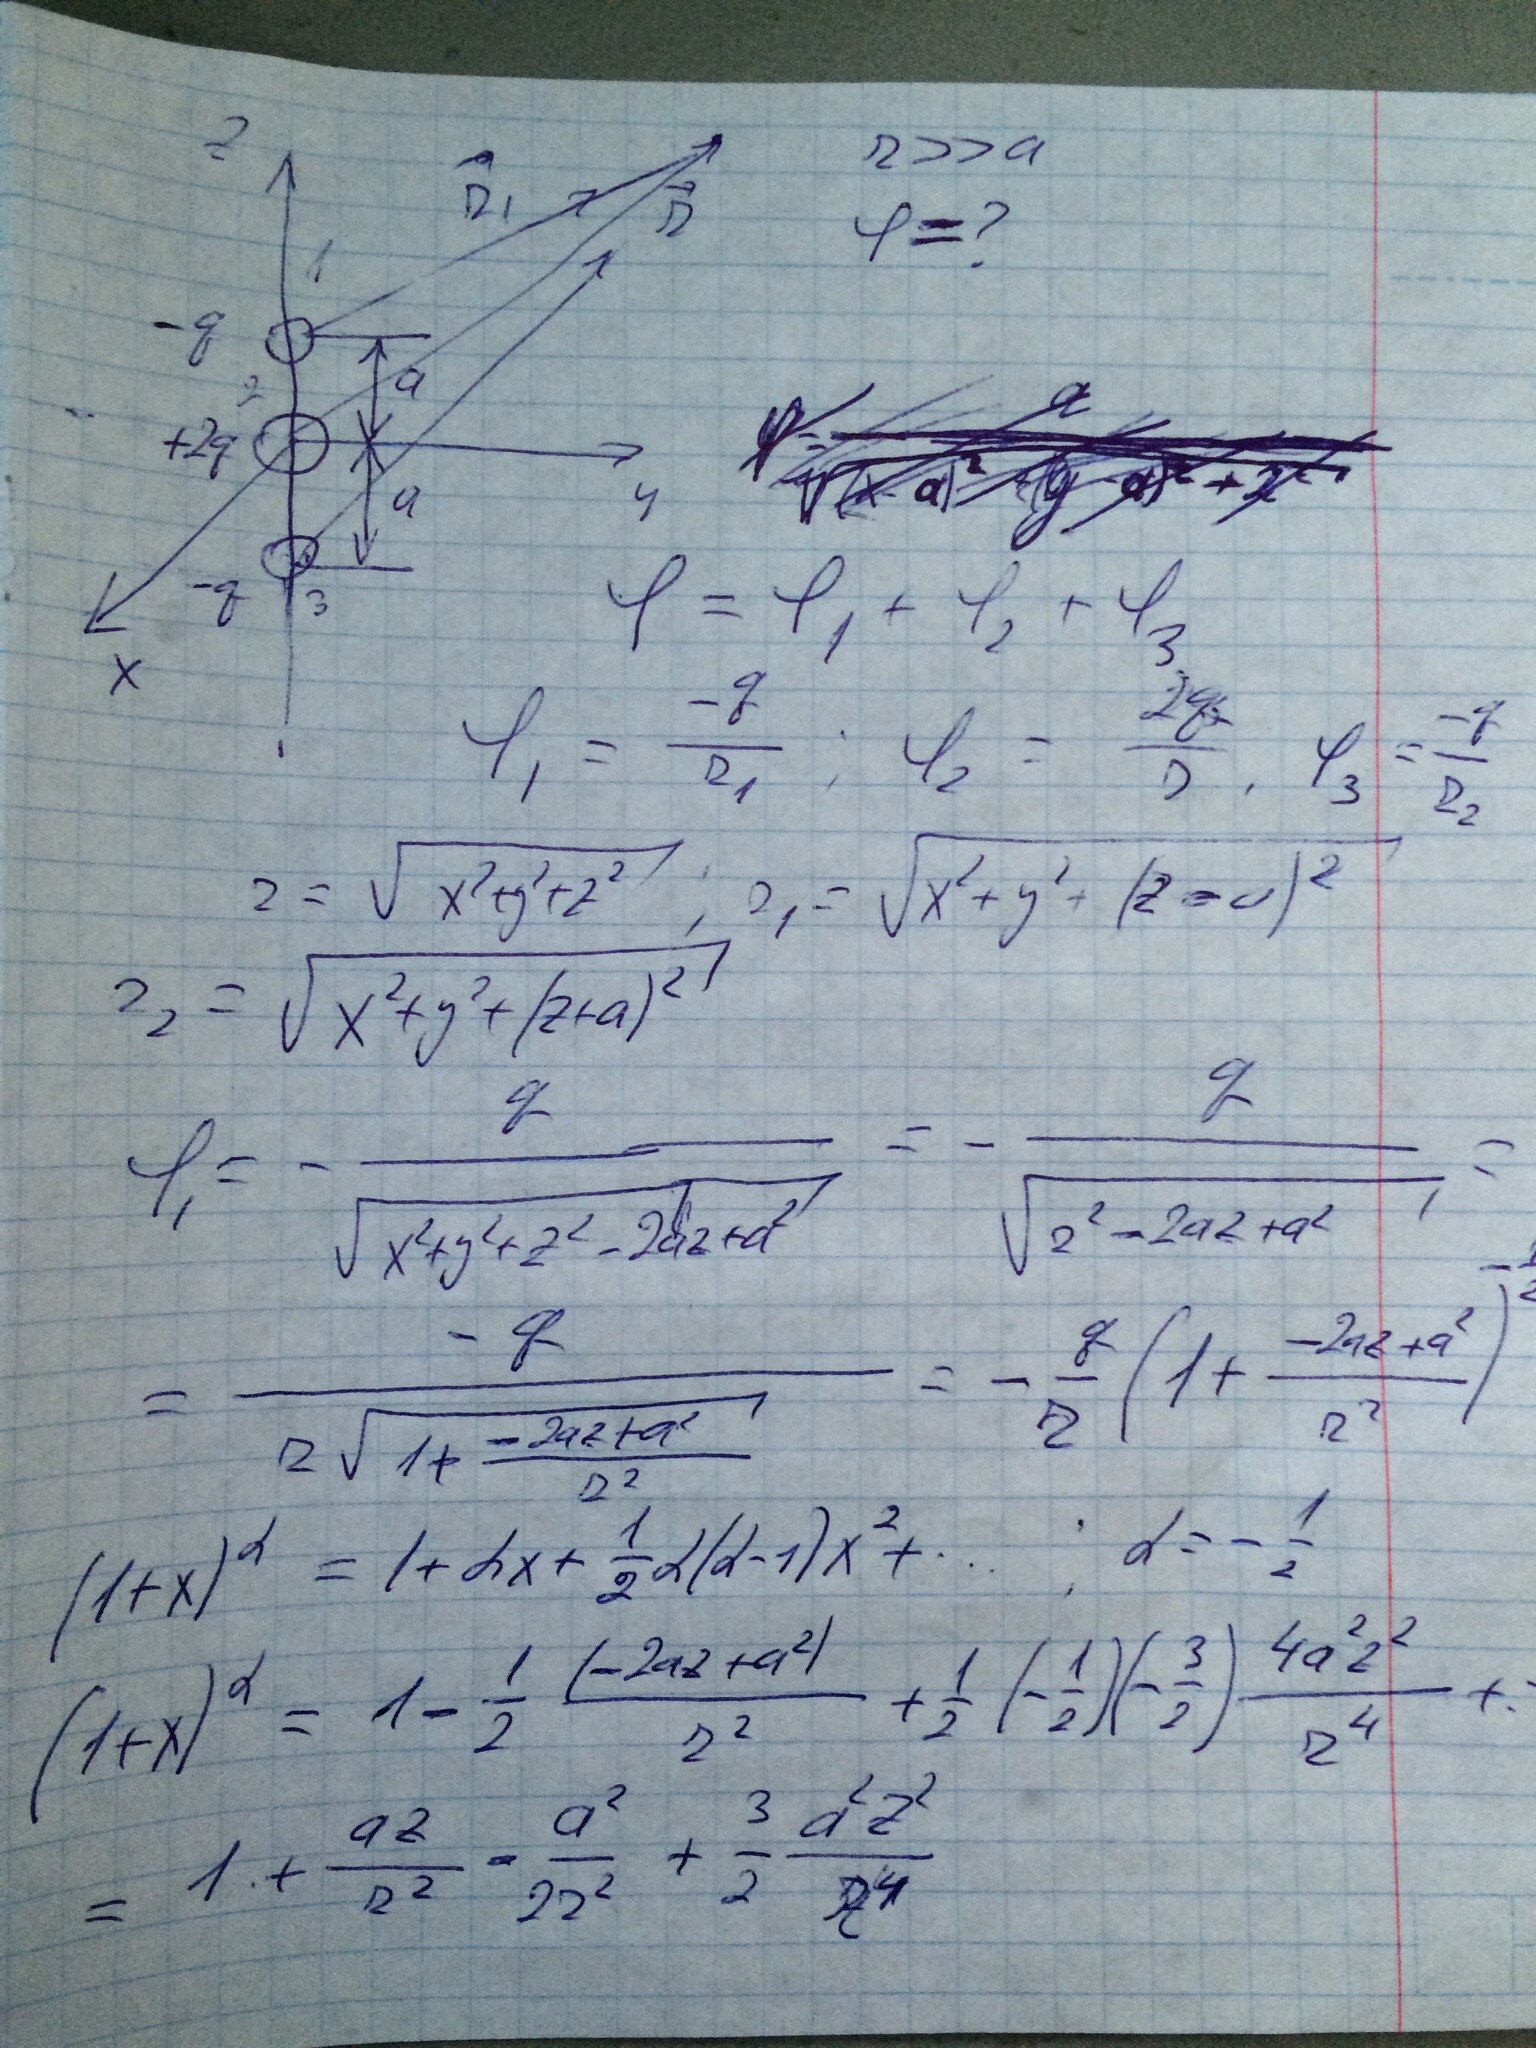 z
r⃗₁
r⃗
r >> a
φ = ?
1
-q
a
2
+2q
y
a
-q
3
x
φ = φ₁ + φ₂ + φ₃
φ₁ = -q/r₁ ; φ₂ = 2q/r , φ₃ = -q/r₂
r = √(x²+y²+z²) ; r₁ = √(x²+y²+(z-a)²)
r₂ = √(x²+y²+(z+a)²)
φ₁ = - q/√(x²+y²+z²-2az+a²) = - q/√(r²-2az+a²) =
= -q/(r√(1+(-2az+a²)/r²)) = - q/r (1+(-2az+a²)/r²)^(-1/2)
(1+x)^α = 1+αx+½α(α-1)x²+... ; α = -1/2
(1+x)^α = 1 - 1/2 (-2az+a²)/r² + 1/2 (-1/2)(-3/2) 4a²z²/r⁴ +
= 1 + az/r² - a²/2r² + 3/2 a²z²/r⁴